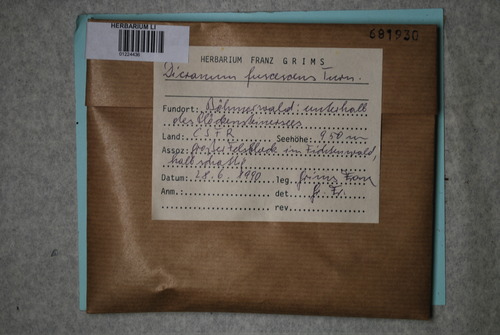 HERBARIUM LI
681930
HERBARIUM FRANZ GRIMS
Dicranum fuscescens Turn.
Fundort: Böhmerwald: unterhalb
des Plöckensteinersees
Land: CSFR Seehöhe: 950 m
Assoz: große Felsblöcke im Fichtenwald,
halbschattig
Datum: 28.6.1990 leg. Grims Franz
Anm.: det. Gr. Fr.
rev.